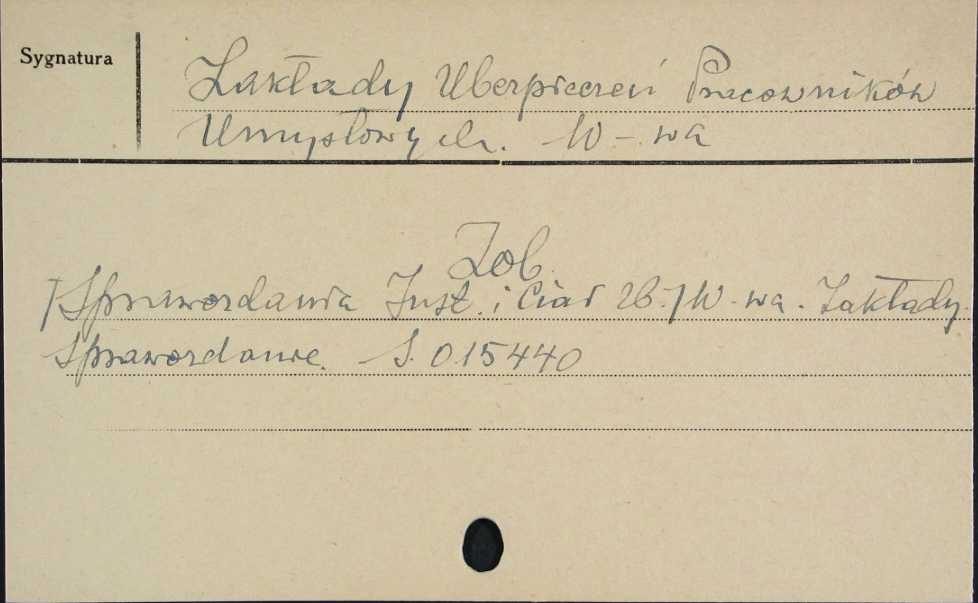 Sygnatura
Zakłady Ubezpieczeń Pracowników
Umysłowych. W-wa
Zob.
/Sprawozdania Inst. i Ciał zb./ W-wa. Zakłady
Sprawozdanie. S. 015440